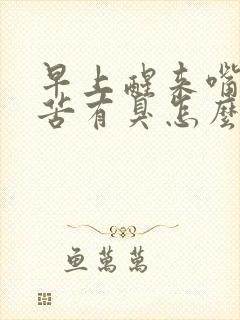 早上醒来嘴
苦有臭怎麼
鱼萬萬